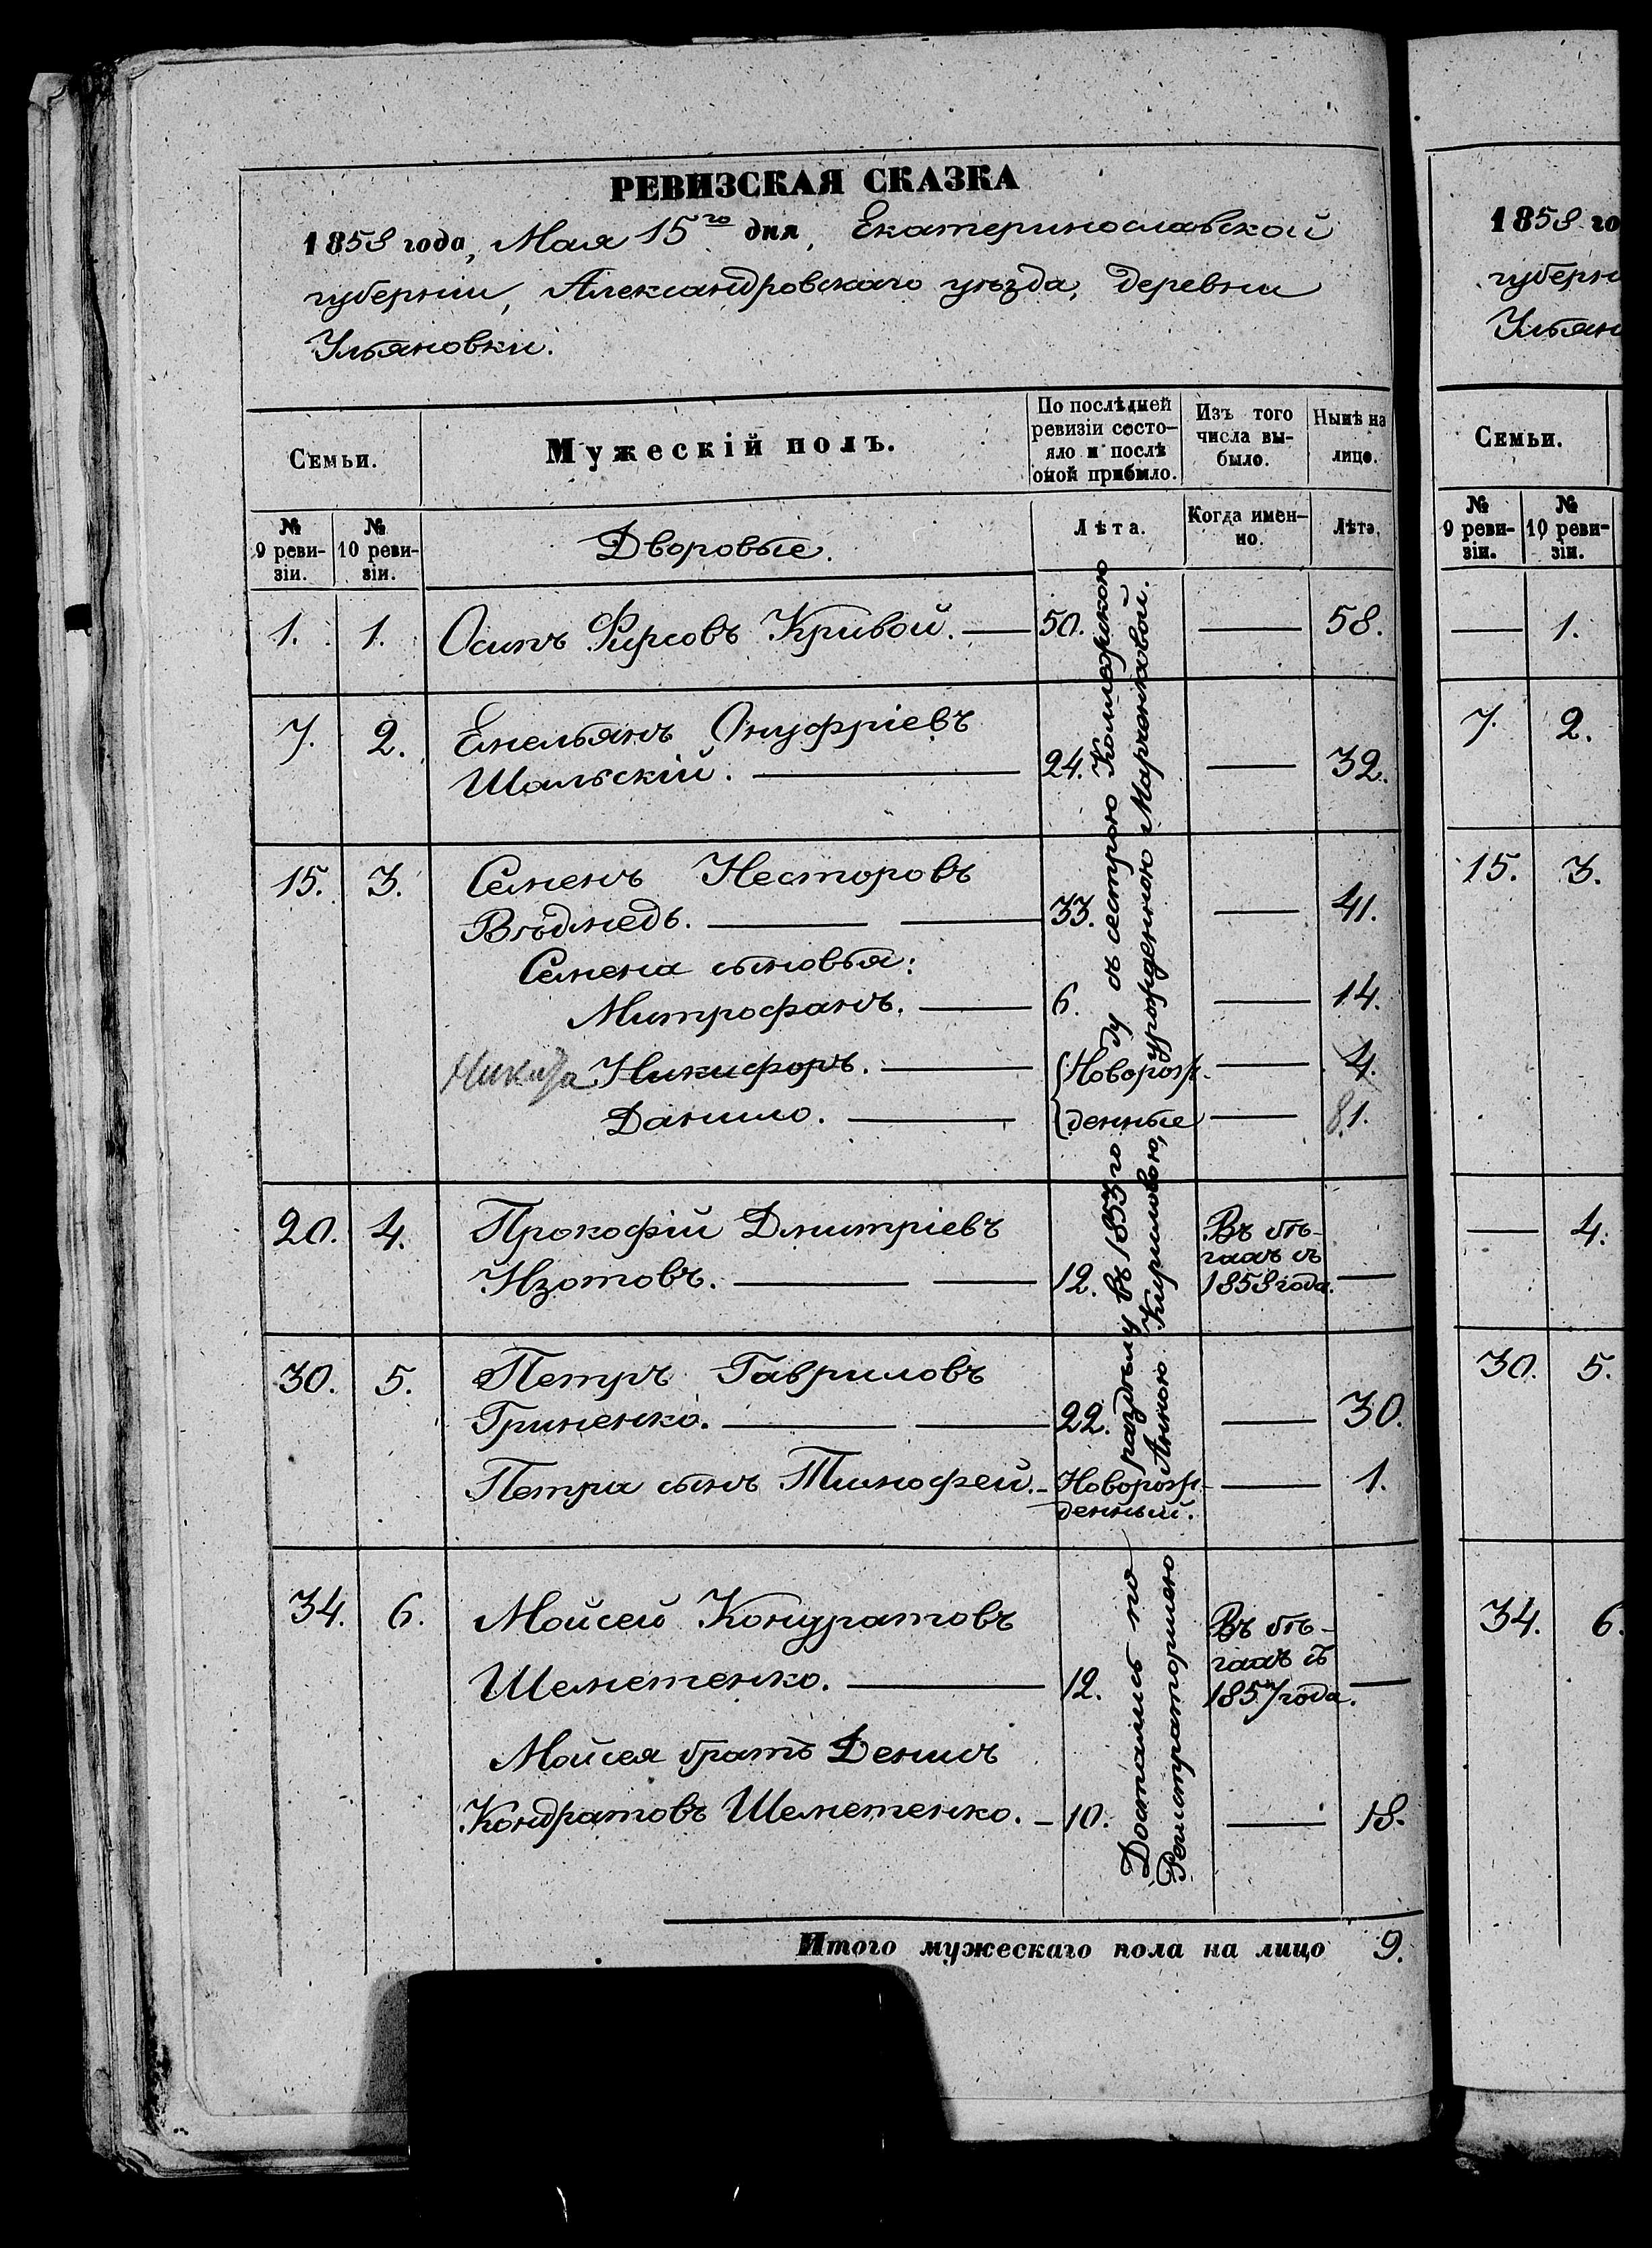 РЕВИЗСКАЯ СКАЗКА
1858 года, Мая 15го дня, Екатеринославской
губерніи, Александровскаго уѣзда, деревни
Ульяновки.
Семьи.
Мужескій полъ.
По послѣдней ревизіи состо-
яло и послѣ
оной прибыло.
Изъ того
числа вы-
было.
Нынѣ на
лицо.
№ 9 реви-
зіи.
№ 10 реви-
зіи.
Дворовые.
Лѣта.
Когда имен-
но.
Лѣта.
1. 1. Осипъ Фирсовъ Кривой. — 50. — 58.
7. 2. Емельянъ Онуфріевъ
Шальскій. — 24. — 32.
15. 3. Семенъ Несторовъ
Вѣдмедь. — 33. — 41.
Семена сыновья:
Митрофанъ. — 6. — 14.
Никита Никифоръ. — Новорож- — 4.
Данило. — денные — 8. 1.
20. 4. Прокофій Дмитріевъ
Изотовъ. — 12. Въ бѣ-
гахъ съ
1858 года. —
30. 5. Петръ Гавриловъ
Гриненко. — 22. — 30.
Петра сынъ Тимофей. - Новорож- — 1.
денный.
34. 6. Мойсей Кондратовъ
Шеметенко. — 12. Въ бѣ-
гахъ съ
1857 года. —
Мойсея братъ Денисъ
Кондратовъ Шеметенко. - 10. — 18.
Достались по раздѣлу въ 1853 году съ сестрою Коллежскою
Регистраторшею Анною Кириловою, урожденною Марченковой.
Итого мужескаго пола на лицо 9.
1858 го
губерн
Ульян
Семьи.
№ 9 реви-
зіи.
№ 10 реви-
зіи.
— 1.
7. 2.
15. 3.
— 4.
30. 5.
34. 6.